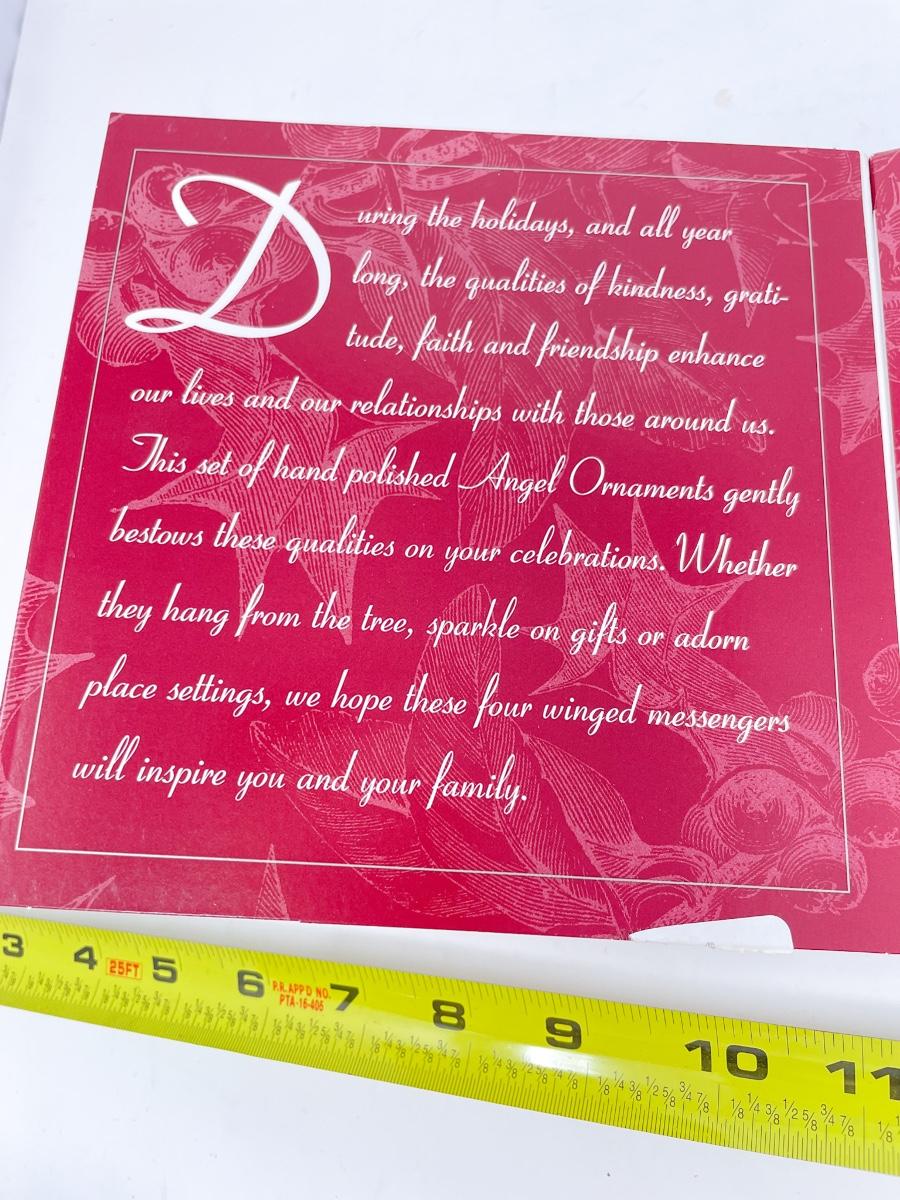 During the holidays, and all year
long, the qualities of kindness, grati-
tude, faith and friendship enhance
our lives and our relationships with those around us.
This set of hand polished Angel Ornaments gently
bestows these qualities on your celebrations. Whether
they hang from the tree, sparkle on gifts or adorn
place settings, we hope these four winged messengers
will inspire you and your family.
3 4 25FT 5 6 P.R. APP'D NO. 7 8 9 10 11
PTA-16-405